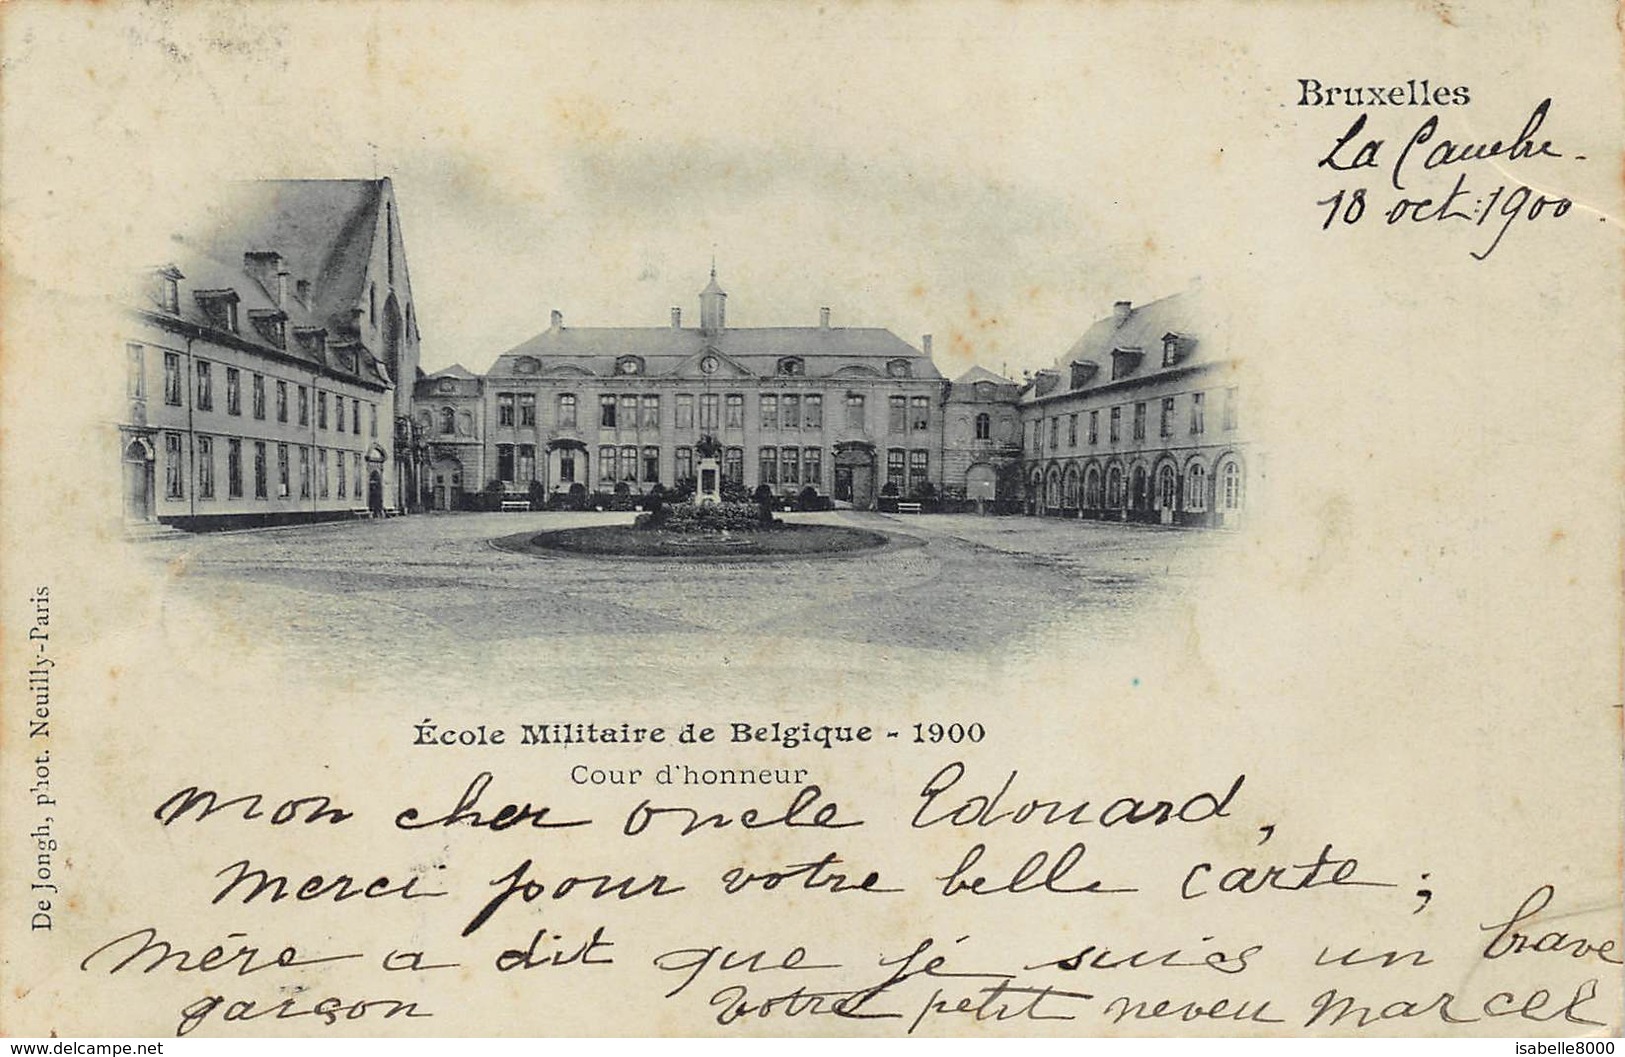 Bruxelles
La Cambre.
18 oct: 1900.
De Jongh, phot. Neuilly-Paris
École Militaire de Belgique - 1900
Cour d'honneur
Mon cher oncle Edouard,
Merci pour votre belle carte;
Mère a dit que jé suis un brave
garçon votre petit neveu Marcel
www.delcampe.net
isabelle8000